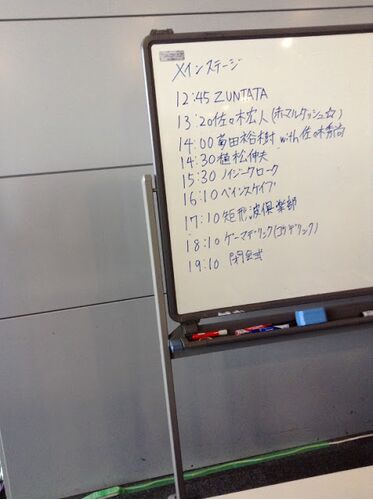 メインステージ
12:45 ZUNTATA
13:20 佐々木宏人(赤マルダッシュ☆)
14:00 菊田裕樹 with 佐々木秀尚
14:30 植松伸夫
15:30 ノイジークローク
16:10 ベインスケイプ
17:10 矩形波倶楽部
18:10 ゲーマデリック(コテデリック)
19:10 閉会式